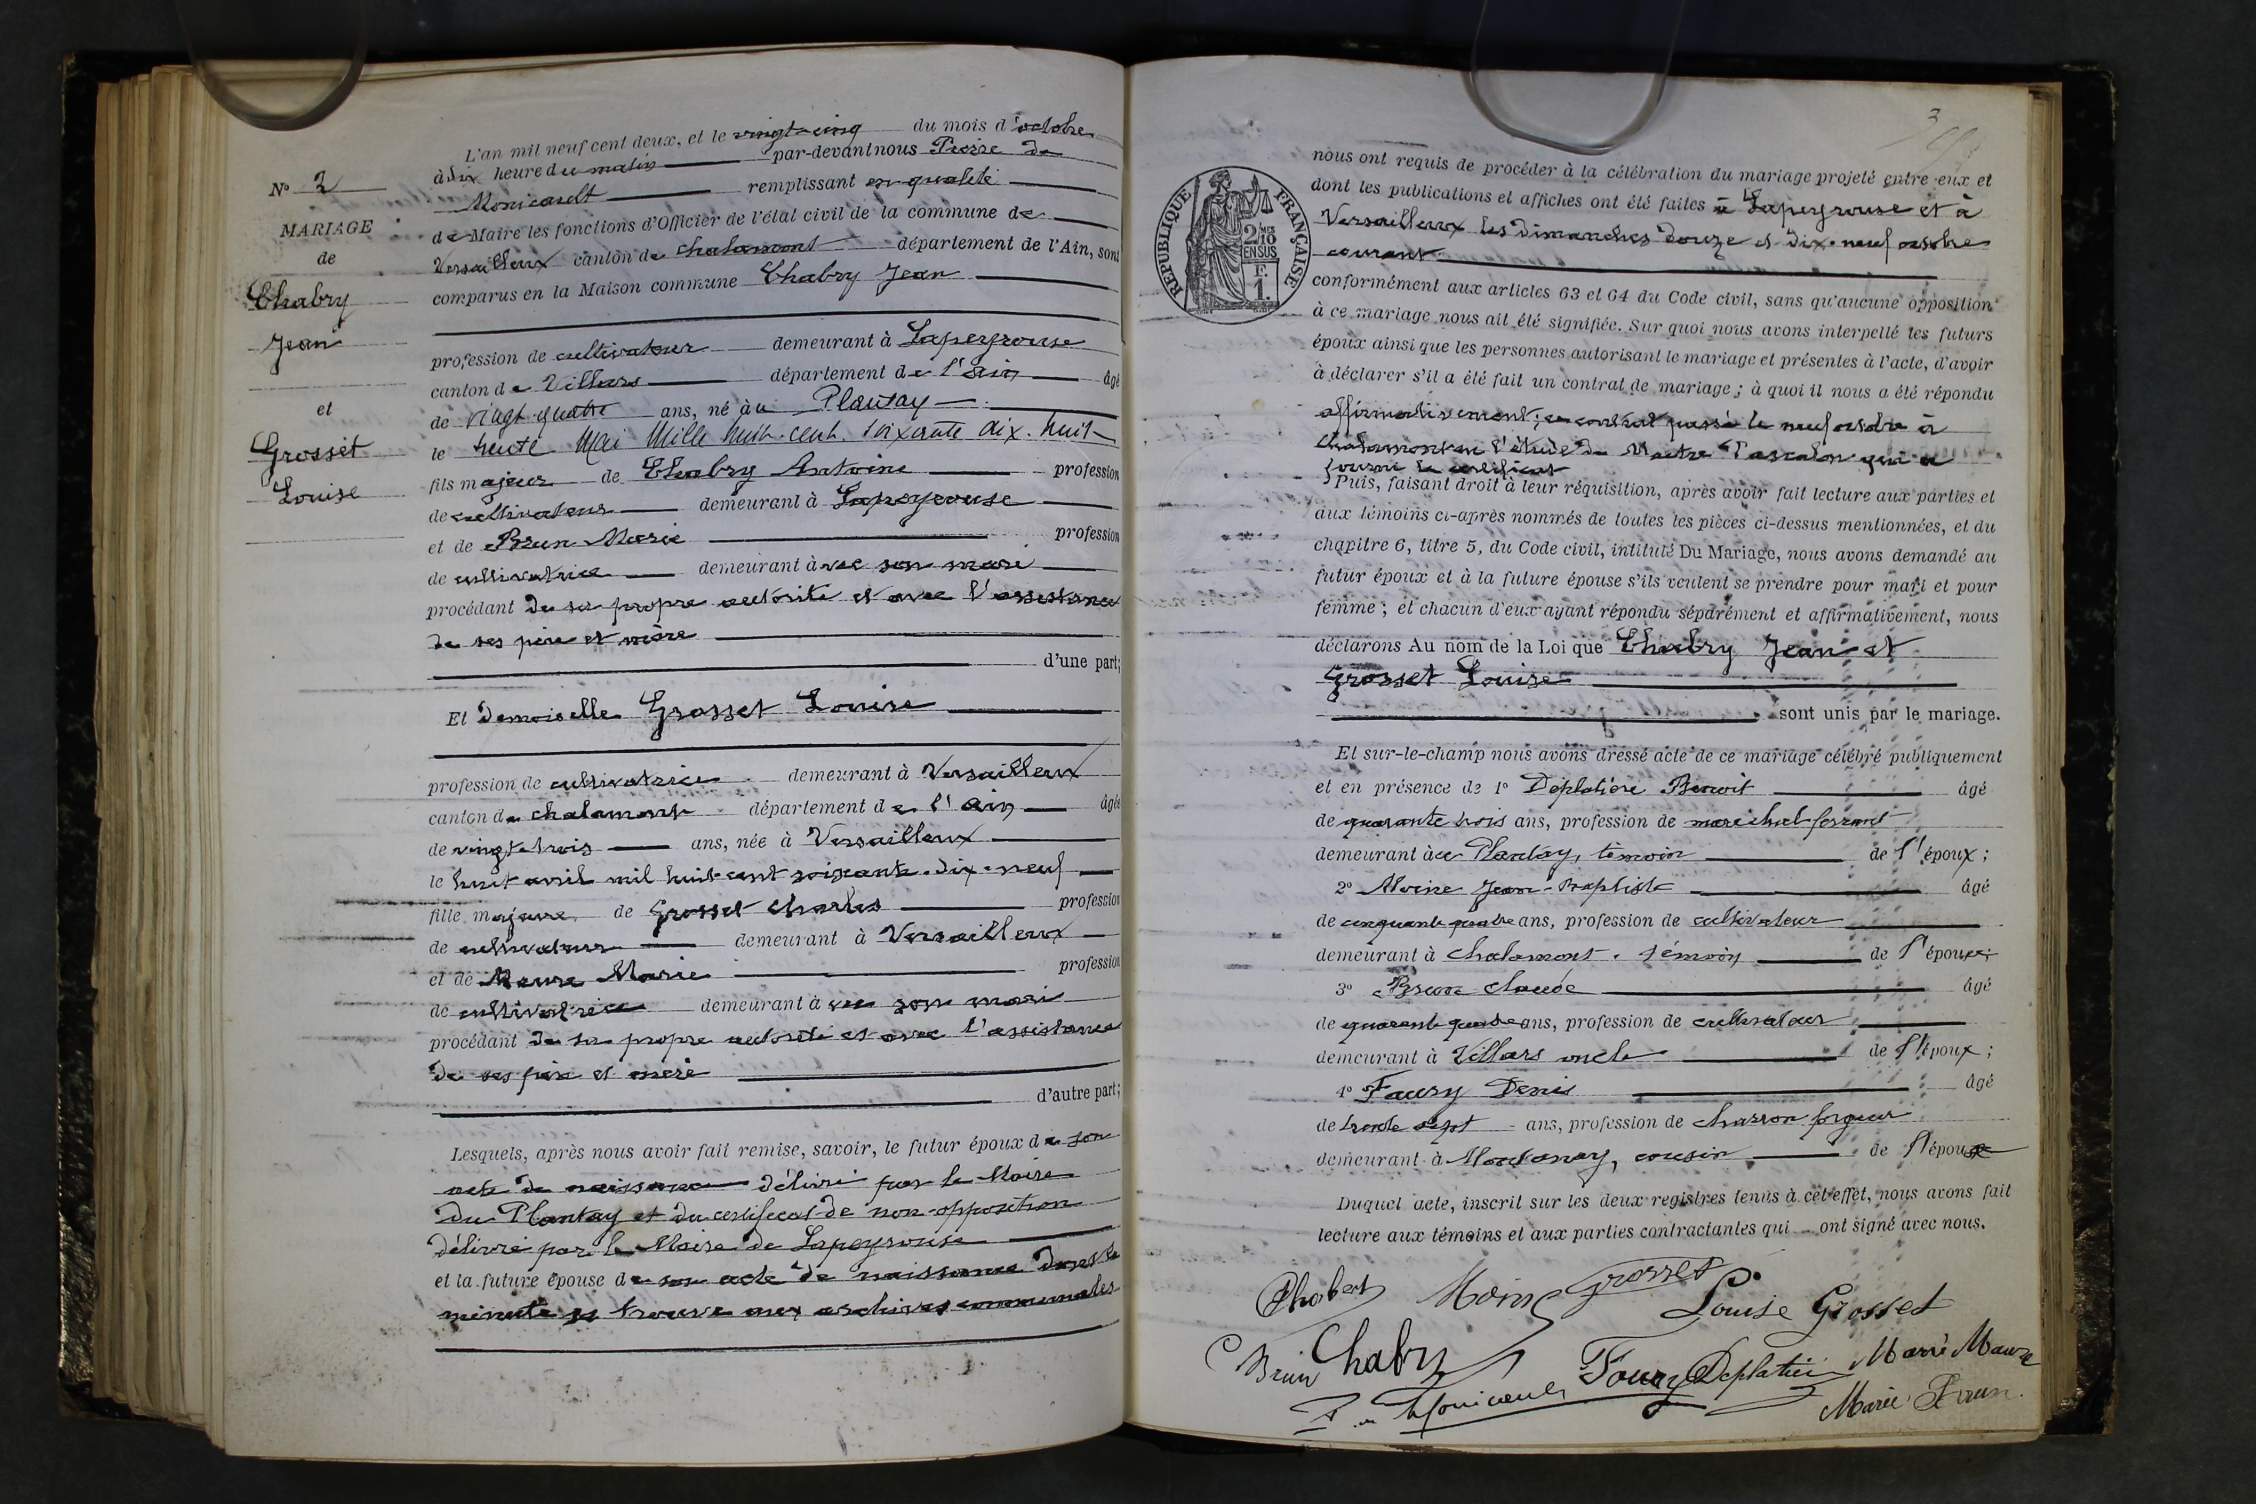 N° 2
MARIAGE
de
Chabry
Jean
et
Grosset
Louise
L'an mil neuf cent deux, et le vingt-cinq du mois d'octobre
à dix heure du matin par-devant nous Pierre de
Monicault remplissant en qualité
de Maire les fonctions d'Officier de l'état civil de la commune de
Versailleux canton de chalamont département de l'Ain, sont
comparus en la Maison commune Chabry Jean
profession de cultivateur demeurant à Lapeyrouse
canton de Villars département de l'Ain âgé
de vingt-quatre ans, né au Plantay
le trente Mai Mille huit-cent-soixante dix-huit
fils majeur de Chabry Antoine profession
de cultivateur demeurant à Lapeyrouse
et de Brun Marie profession
de cultivatrice demeurant avec son mari
procédant de sa propre autorité et avec l'assistance
de ses père et mère
d'une part;
Et Demoiselle Grosset Louise
profession de cultivatrice demeurant à Versailleux
canton de chalamont département de l'Ain âgée
de vingt-trois ans, née à Versailleux
le huit avril mil huit-cent soixante-dix-neuf
fille majeure de Grosset Charles profession
de cultivateur demeurant à Versailleux
et de Maure Marie profession
de cultivatrice demeurant avec son mari
procédant de sa propre autorité et avec l'assistance
de ses père et mère
d'autre part;
Lesquels, après nous avoir fait remise, savoir, le futur époux de son
acte de naissance délivré par le Maire
du Plantay et du certificat de non-opposition
délivré par le Maire de Lapeyrouse
et la future épouse de son acte de naissance dont la
minute se trouve aux archives communales
3
RÉPUBLIQUE FRANÇAISE
2 /10 MES
EN SUS
F.
1.
nous ont requis de procéder à la célébration du mariage projeté entre eux et
dont les publications et affiches ont été faites à Lapeyrouse et à
Versailleux les dimanches douze et dix-neuf octobre
courant
conformément aux articles 63 et 64 du Code civil, sans qu'aucune opposition
à ce mariage nous ait été signifiée. Sur quoi nous avons interpellé les futurs
époux ainsi que les personnes autorisant le mariage et présentes à l'acte, d'avoir
à déclarer s'il a été fait un contrat de mariage; à quoi il nous a été répondu
affirmativement; ce contrat passé le neuf octobre à
chalamont en l'étude de Maitre Pascalon qui a
fourni le certificat
Puis, faisant droit à leur réquisition, après avoir fait lecture aux parties et
aux témoins ci-après nommés de toutes les pièces ci-dessus mentionnées, et du
chapitre 6, titre 5, du Code civil, intitulé Du Mariage, nous avons demandé au
futur époux et à la future épouse s'ils veulent se prendre pour mari et pour
femme; et chacun d'eux ayant répondu séparément et affirmativement, nous
déclarons Au nom de la Loi que Chabry Jean et
Grosset Louise
sont unis par le mariage.
Et sur-le-champ nous avons dressé acte de ce mariage célébré publiquement
et en présence de 1° Déplatière Benoit âgé
de quarante trois ans, profession de maréchal-ferrant
demeurant au Plantay, témoin de l'époux;
2° Moine Jean-Baptiste âgé
de cinquante quatre ans, profession de cultivateur
demeurant à chalamont, témoin de l'épouse;
3° Brun Claude âgé
de quarante quatre ans, profession de cultivateur
demeurant à Villars oncle de l'époux;
4° Faury Denis âgé
de trente sept ans, profession de charron forgeur
demeurant à Montanay, cousin de l'épouse
Duquel acte, inscrit sur les deux registres tenus à cet effet, nous avons fait
lecture aux témoins et aux parties contractantes qui ont signé avec nous.
Moine Grosset
Louise Grosset
C Brun Chabry Faury Deplatière Marie Maure
P. de Monicault Marie Brun